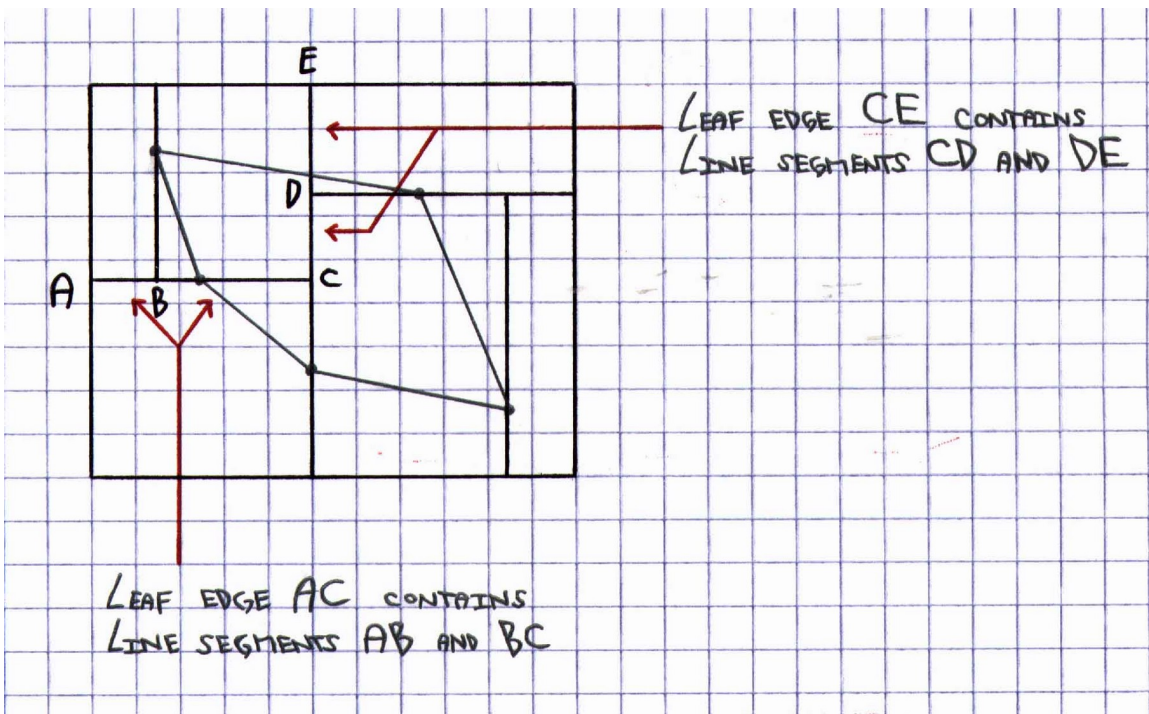 E
LEAF EDGE CE CONTAINS
LINE SEGMENTS CD AND DE
D
C
A
B
LEAF EDGE AC CONTAINS
LINE SEGMENTS AB AND BC